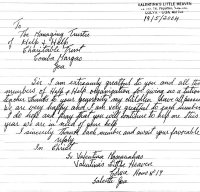 VALENTINE'S LITTLE HEAVEN
19/5/2004
To
The Managing Trustee
of Help & Help
Charitable Trust
Comba Margao
Goa
Sir I am extremely grateful to you and all the
members of Help & Help organization for giving us a tuition
teacher thanks to your generosity my children have all passed
we are very happy and I am very grateful to your members
I do hope and pray that you will continue to help me this
year we are in need of your help
I sincerely thank each member and await your favorable
reply
In Christ
Valentine
Valentines Little Heaven
House No
Goa